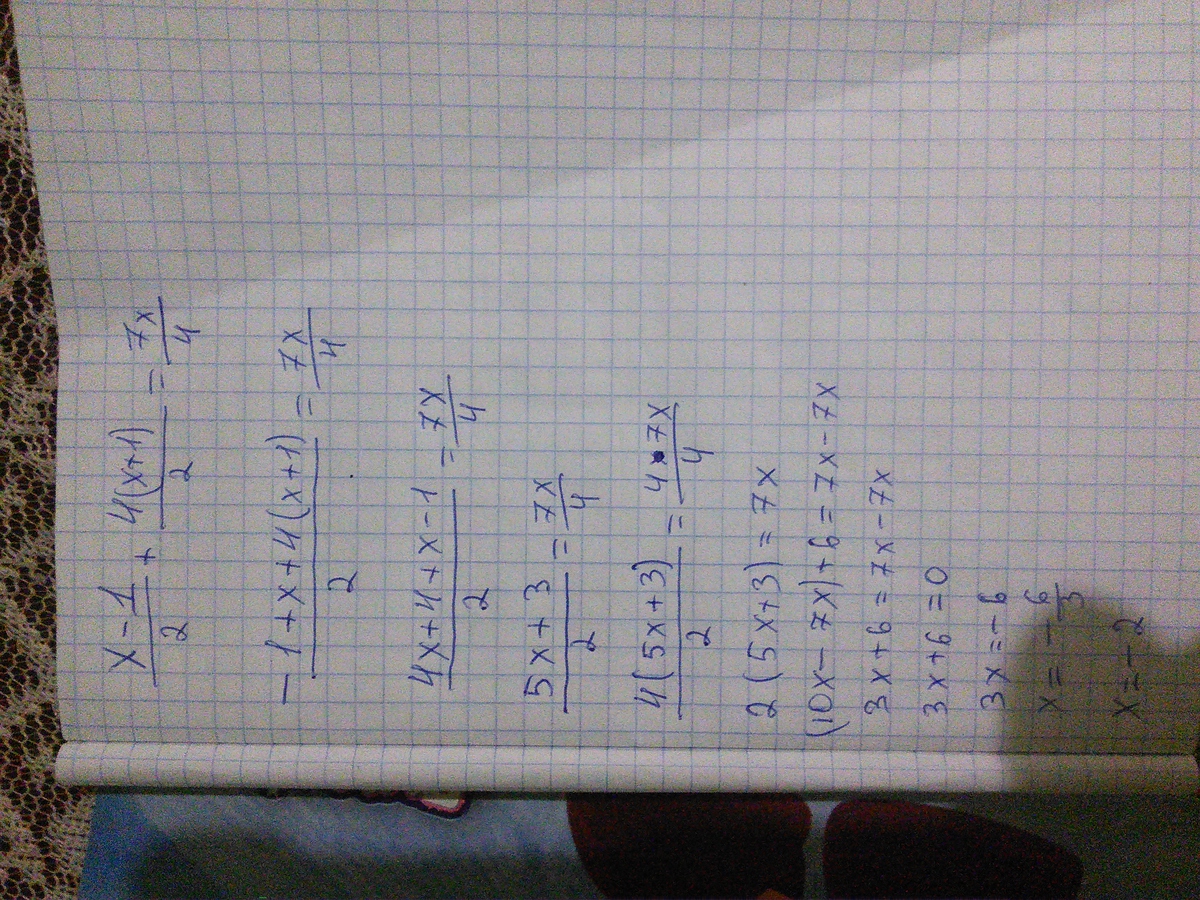 x-1/2 + 4(x+1)/2 = 7x/4
-1+x+4(x+1)/2 = 7x/4
4x+4+x-1/2 = 7x/4
5x+3/2 = 7x/4
4(5x+3)/2 = 4•7x/4
2(5x+3)=7x
(10x-7x)+6=7x-7x
3x+6=7x-7x
3x+6=0
3x=-6
x=-6/3
x=-2